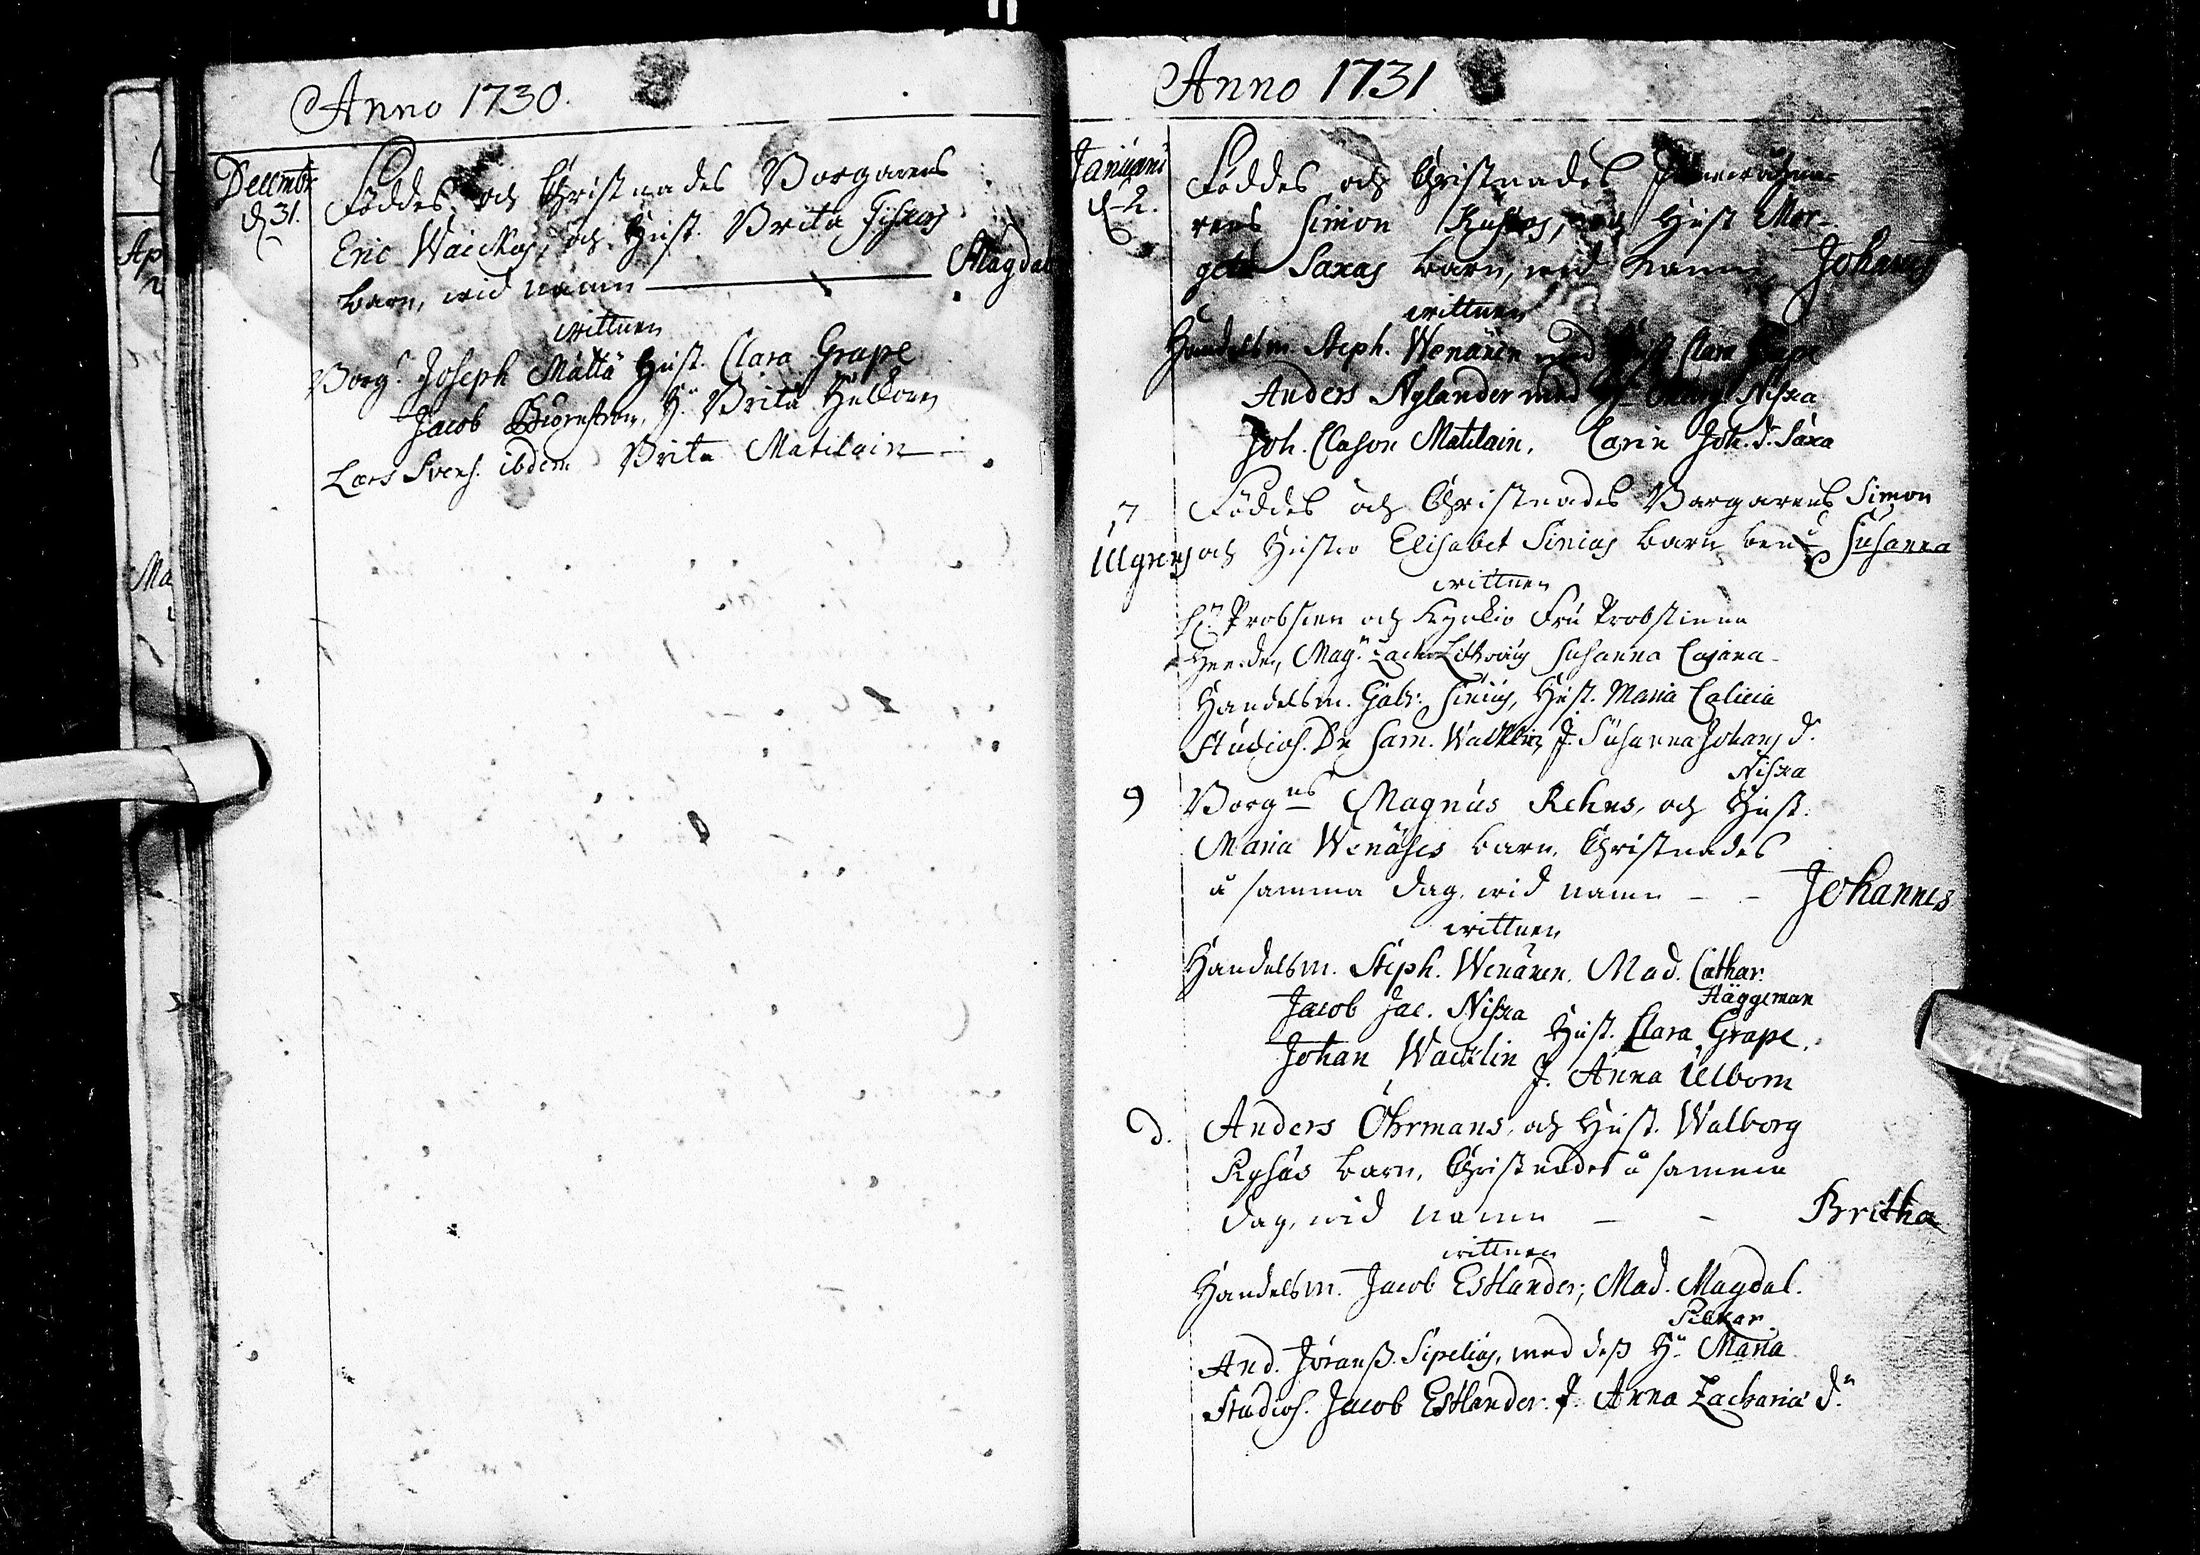 Anno 1730.
Decembr
d. 31.
Föddes och Christnades Borgarens
Eric Wäickas, och Hust. Brita
barn, wid namn Magdal
wittnen
Borg. Joseph Mattä Hust. Clara Grape
Jacob Biörnström, H. Brita
Lars Svens. ibdem Brita Matilain
Ap
Ma
Anno 1731
Januarii
d. 2.
Föddes och Christnades
rens Simon och Hust Mar-
geta Saxas barn, wid namn Johannes
wittnen
Handelsm. Steph. Wenären med Hust Clara Grape
Anders Nylander med Niska
Joh. Clason Matilain. Carin Joh. d. Saxa
7 Föddes och Christnades Borgarens Simon
Ullgrens och Hustro Elisabet Sinias barn ben. Susanna
wittnen
H. Probsten och Kyrkio Fru Probstinna
Mag. Zach. Susanna Cajana
Handelsm. Gabr. Sinius, Hust. Maria Calicia
Studios. Dn Sam. Wacklin, J. Susanna Johans d.
Niska
9 Borgns Magnus Rehns, och Hust.
Maria Wenähes barn, Christnades
å samma dag, wid namn - - Johannes
wittnen
Handelsm. Steph. Wenären. Mad. Cathar.
Häggeman
Jacob Jac. Niska Hust. Clara Grape,
Johan Wacklin J. Anna Ulbom
d. Anders Öhrmans, och Hust. Walborg
Ryhäs barn, Christnades å samma
dag, wid namn - - Britha
wittnen
Handelsm. Jacob Estlander, Mad. Magdal.
And. Jöranss. Sipelius, med dess H. Maria
Studios. Jacob Estlander. J. Anna Zachariæ d.